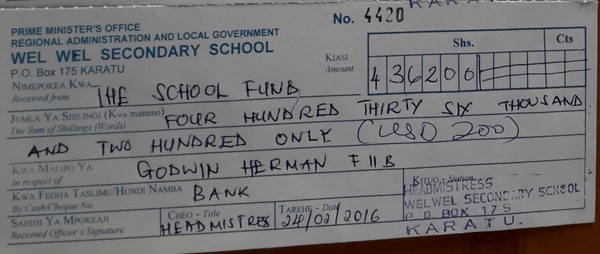 PRIME MINISTER'S OFFICE
REGIONAL ADMINISTRATION AND LOCAL GOVERNMENT
WEL WEL SECONDARY SCHOOL
P.O. Box 175 KARATU
No. 4420
KARATU
KIASI
Amount
Shs.
Cts
436200
NIMEPOKEA KWA
Received from
THE SCHOOL FUND
JUMLA YA SHILINGI (Kwa maneno)
The Sum of Shillings (Words)
FOUR HUNDRED THIRTY SIX THOUSAND
AND TWO HUNDRED ONLY (USD 200)
KWA MALIPO YA
In respect of
GODWIN HERMAN F IIB
KWA FEDHA TASLIMU/HUNDI NAMBA
By Cash/Cheque No
BANK
SAHIHI YA MPOKEAJI
Received Officer's Signature
CHEO - Title
HEADMISTRESS
TAREHE - Date
24/02/2016
KITUO - Station
HEADMISTRESS
WELWEL SECONDARY SCHOOL
P O BOX 175
KARATU.